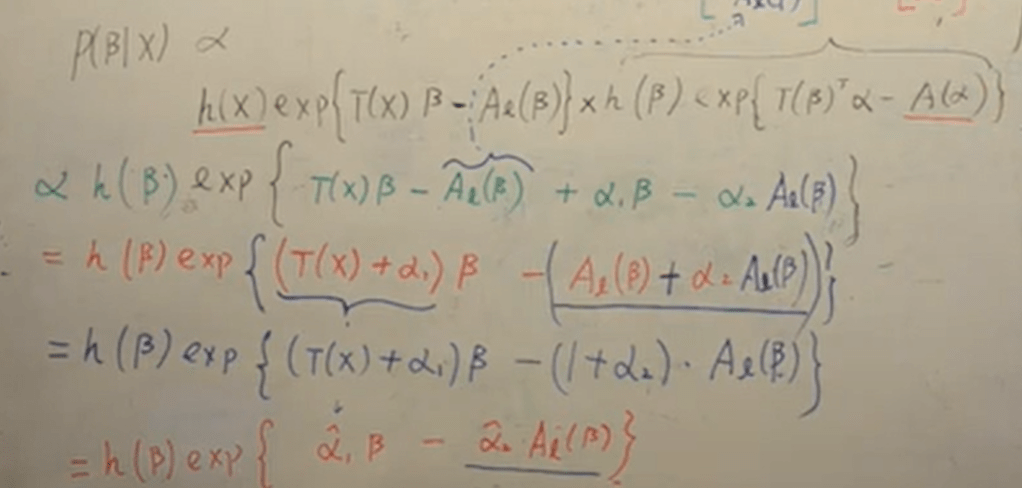 P(β|X) ∝
h(X) exp{T(X) β - Aℓ(β)} × h(β) exp{T(β)ᵀ α - A(α)}
∝ h(β) exp{ T(X) β - Aℓ(β) + α₁ β - α₂ Aℓ(β)}
= h(β) exp{(T(X) + α₁) β - (Aℓ(β) + α₂ Aℓ(β))}
= h(β) exp{(T(X) + α₁) β - (1 + α₂) · Aℓ(β)}
= h(β) exp{ α̂₁ β - α̂₂ Aℓ(β)}